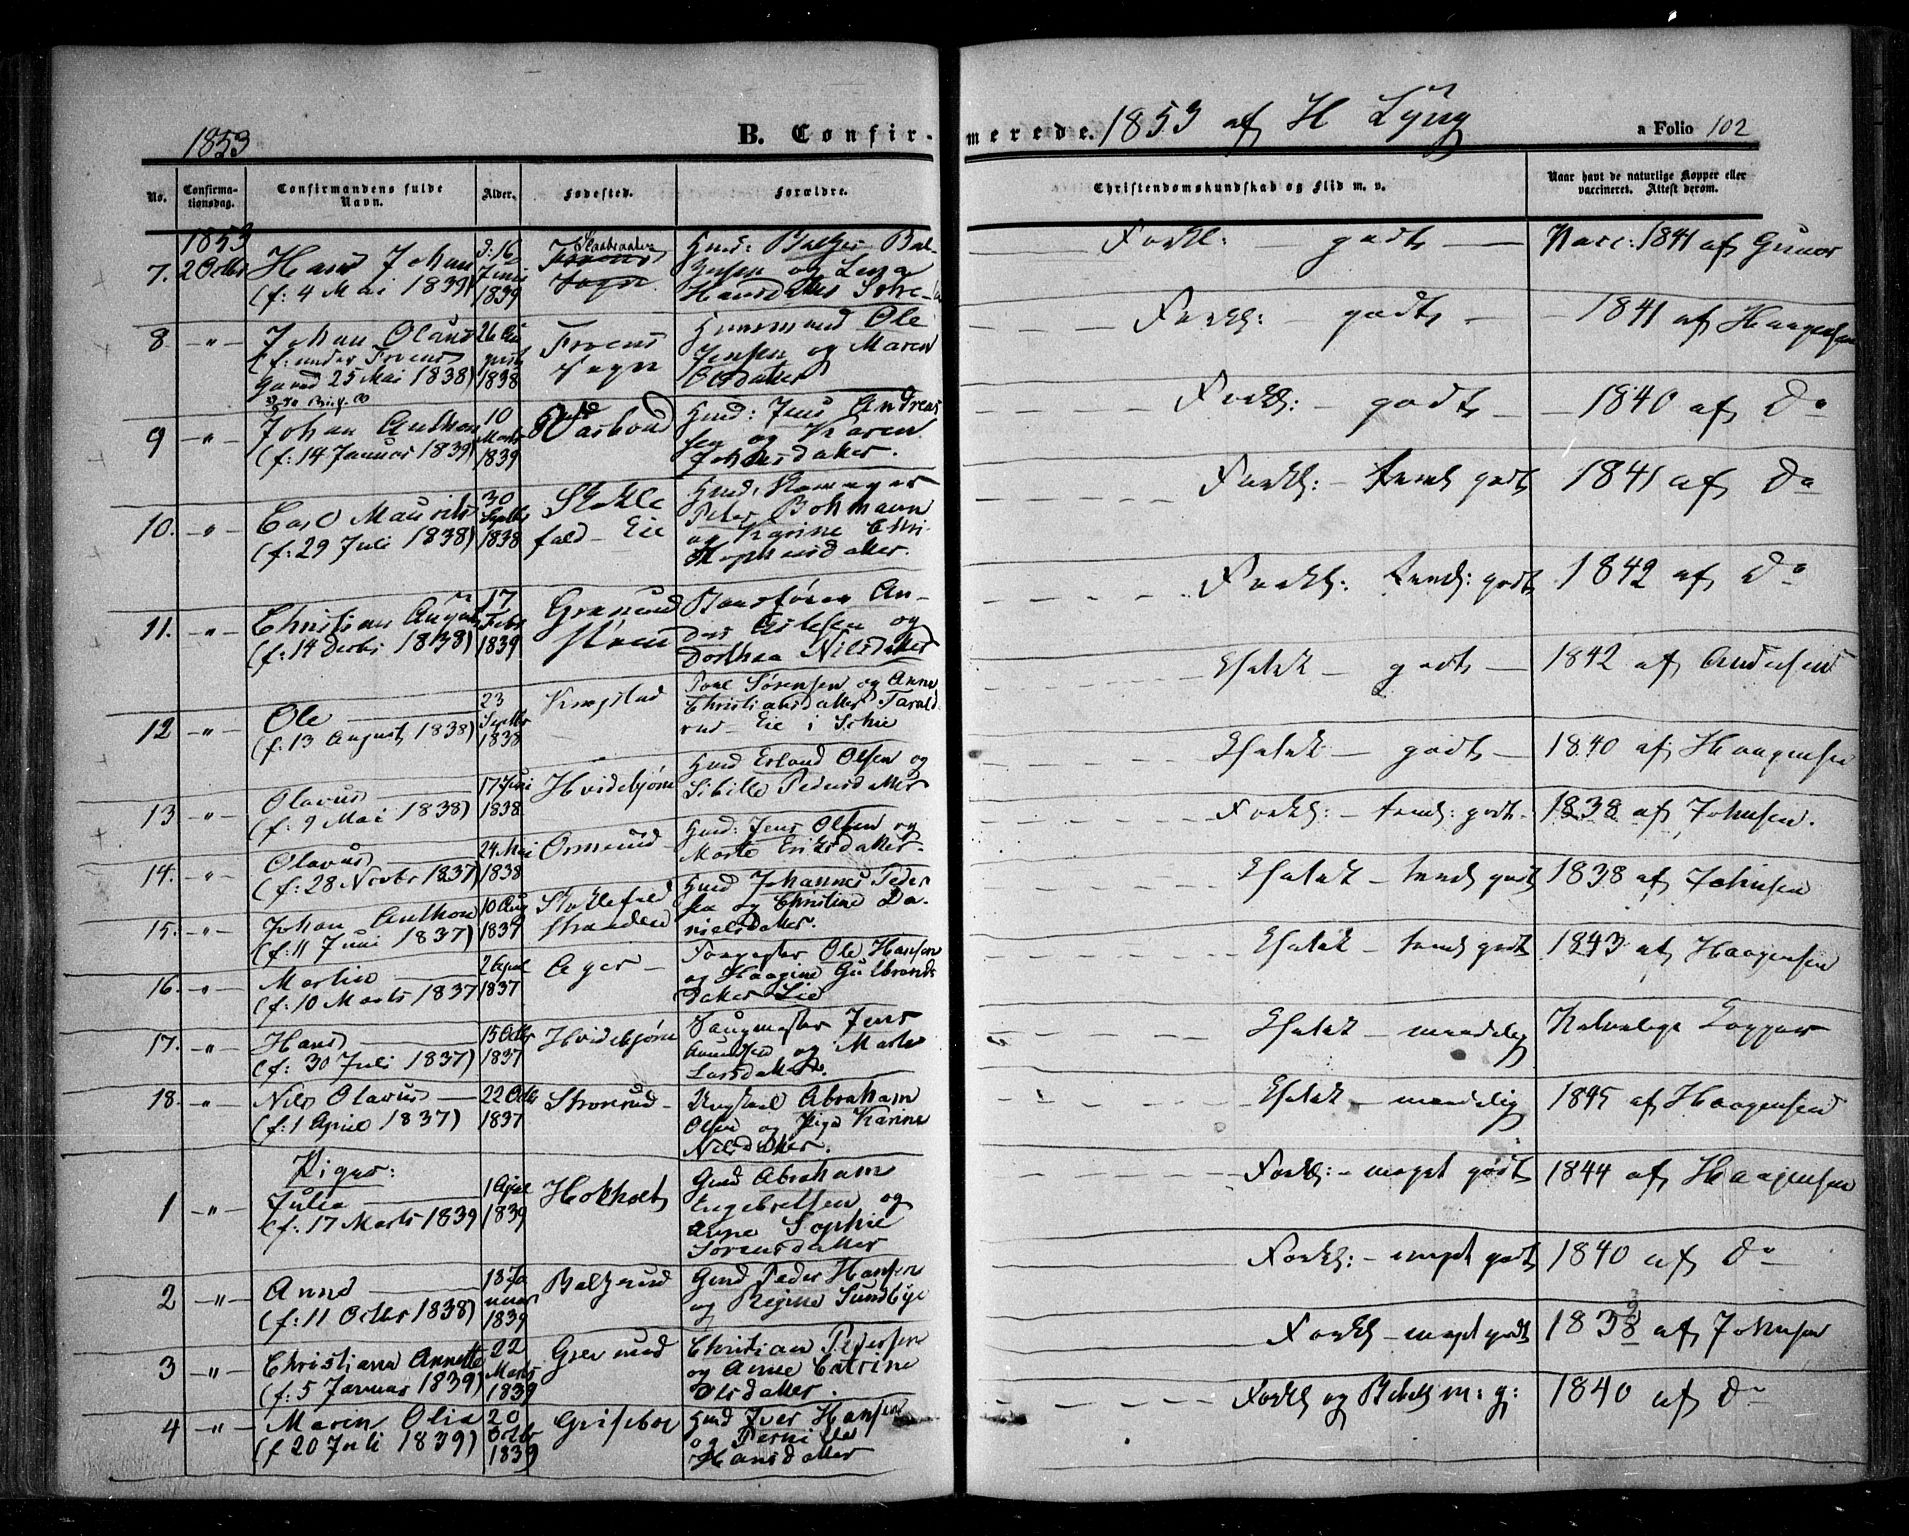 1853
B. Confir-
merede. 1853 af H Lyng
a Folio 102
No.
Confirma-
tionsdag.
Confirmandens fulde
Navn.
Alder.
Fødested.
Forældre.
Christendomskundskab og Flid m. v.
Naar havt de naturlige Kopper eller
vaccineret. Attest derom.
1853
7. 2 Octbr Hans Johan
(f: 4 Mai 1839)
d: 16
Juni
1839
Froens
Sogn
Gmd: Balzer Bal-
zersen og Lena
Hansdatter
Forkl: godt — Vacc: 1841 af Gunor
8 —"— Johan Olaus
(f: under Froens
Gaard 25 Mai 1838)
26 Au
gust
1838
Froens
Sogn
Huusmand Ole
Jensen og Maren
Olsdatter
Forkl: — godt — 1841 af Haagensen
9 —"— Johan Anthon
(f: 14 Januar 1839)
10
Marts
1839
Gmd: Jens Andreas
sen og Karen
Johansdatter.
Forkl: — godt — 1840 af Do
10. —"— Carl Maurits
(f: 29 Juli 1838)
30
Septbr
1838
Stokle
fald — Eie
Gmd:
Peter Bohmann
og Karine Chri-
stophersdatter.
Forkl: — temml godt 1841 af Do
11. —"— Christian August
(f: 14 Decbr 1838)
17
Febr
1839
An-
ders Aslesen og
Dorthea Nilsdatter
Forkl: temml: godt 1842 af Do
12 —"— Ole
(f: 13 August 1838)
23
Septbr
1838
Poul Sørensen og Anne
Christiansdatter Tarald
rud — Eie i Schie
Eftatet — godt — 1842 af Andersen
13 —"— Olavus
(f: 9 Mai 1838)
17 Juni
1838
Hvidebjørn
Gmd Erland Olsen og
Sibille Pedersdatter
— godt — 1840 af Haagensen
14. —"— Olavus
(f: 28 Novbr 1837)
24 Mai
1838
Ormerud —
Gmd: Jens Olsen og
Marte Eriksdatter.
Forkl: — temml: godt 1838 af Johnsen.
15. —"— Johan Anthon
(f: 11 Juni 1837)
10 Aug
1837
Stoklefald
stranden
Gmd Johannes Peder
sen og Christine Da-
nielsdatter.
— temml godt 1838 af Johnsen
16. —"— Martin
(f: 10 Marts 1837
2 April
1837
Ager —
Ole Hansen
og Haagine Gulbrands
datter Lie
— temml godt 1843 af Haagensen
17. —"— Hans
(f: 30 Juli 1837)
15 Octbr
1837
Hvidebjørn
Jens
og Marte
Larsdatter.
— maadelig Naturlige Kopper
18. —"— Nils Olavus
(f: 1 April 1837)
22 Octbr
1837
Storerud —
Ungkarl Abraham
Olsen og Pige Karine
Nilsdatter.
— maadelig 1845 af Haagensen
Piger:
1 —"— Julia
(f: 17 Marts 1839
1 April
1839
Hokholt
Gmd Abraham
Engebretsen og
Anne Sophie
Sørensdatter
Forkl: — meget godt 1844 af Haagensen
2 —"— Anne
(f: 11 Octbr 1838)
18 Ja
nuar
1839
Balzerud
Gmd Peder Hansen
og Regine Sundbye
Forkl: — meget godt 1840 af Do
3 —"— Christiana Annette
(f: 5 Januar 1839)
22
Marts
1839
Greverud
Christian Pedersen
og Anne Catrine
Olsdatter.
Forkl — meget godt 1838 af Johnsen
4 —"— Maren Olia
(f 20 Juli 1839)
20
Octbr
1839
Grisebo
Gmd Iver Hansen
og Pernille
Hansdatter
Forkl og m: g: 1840 af Do